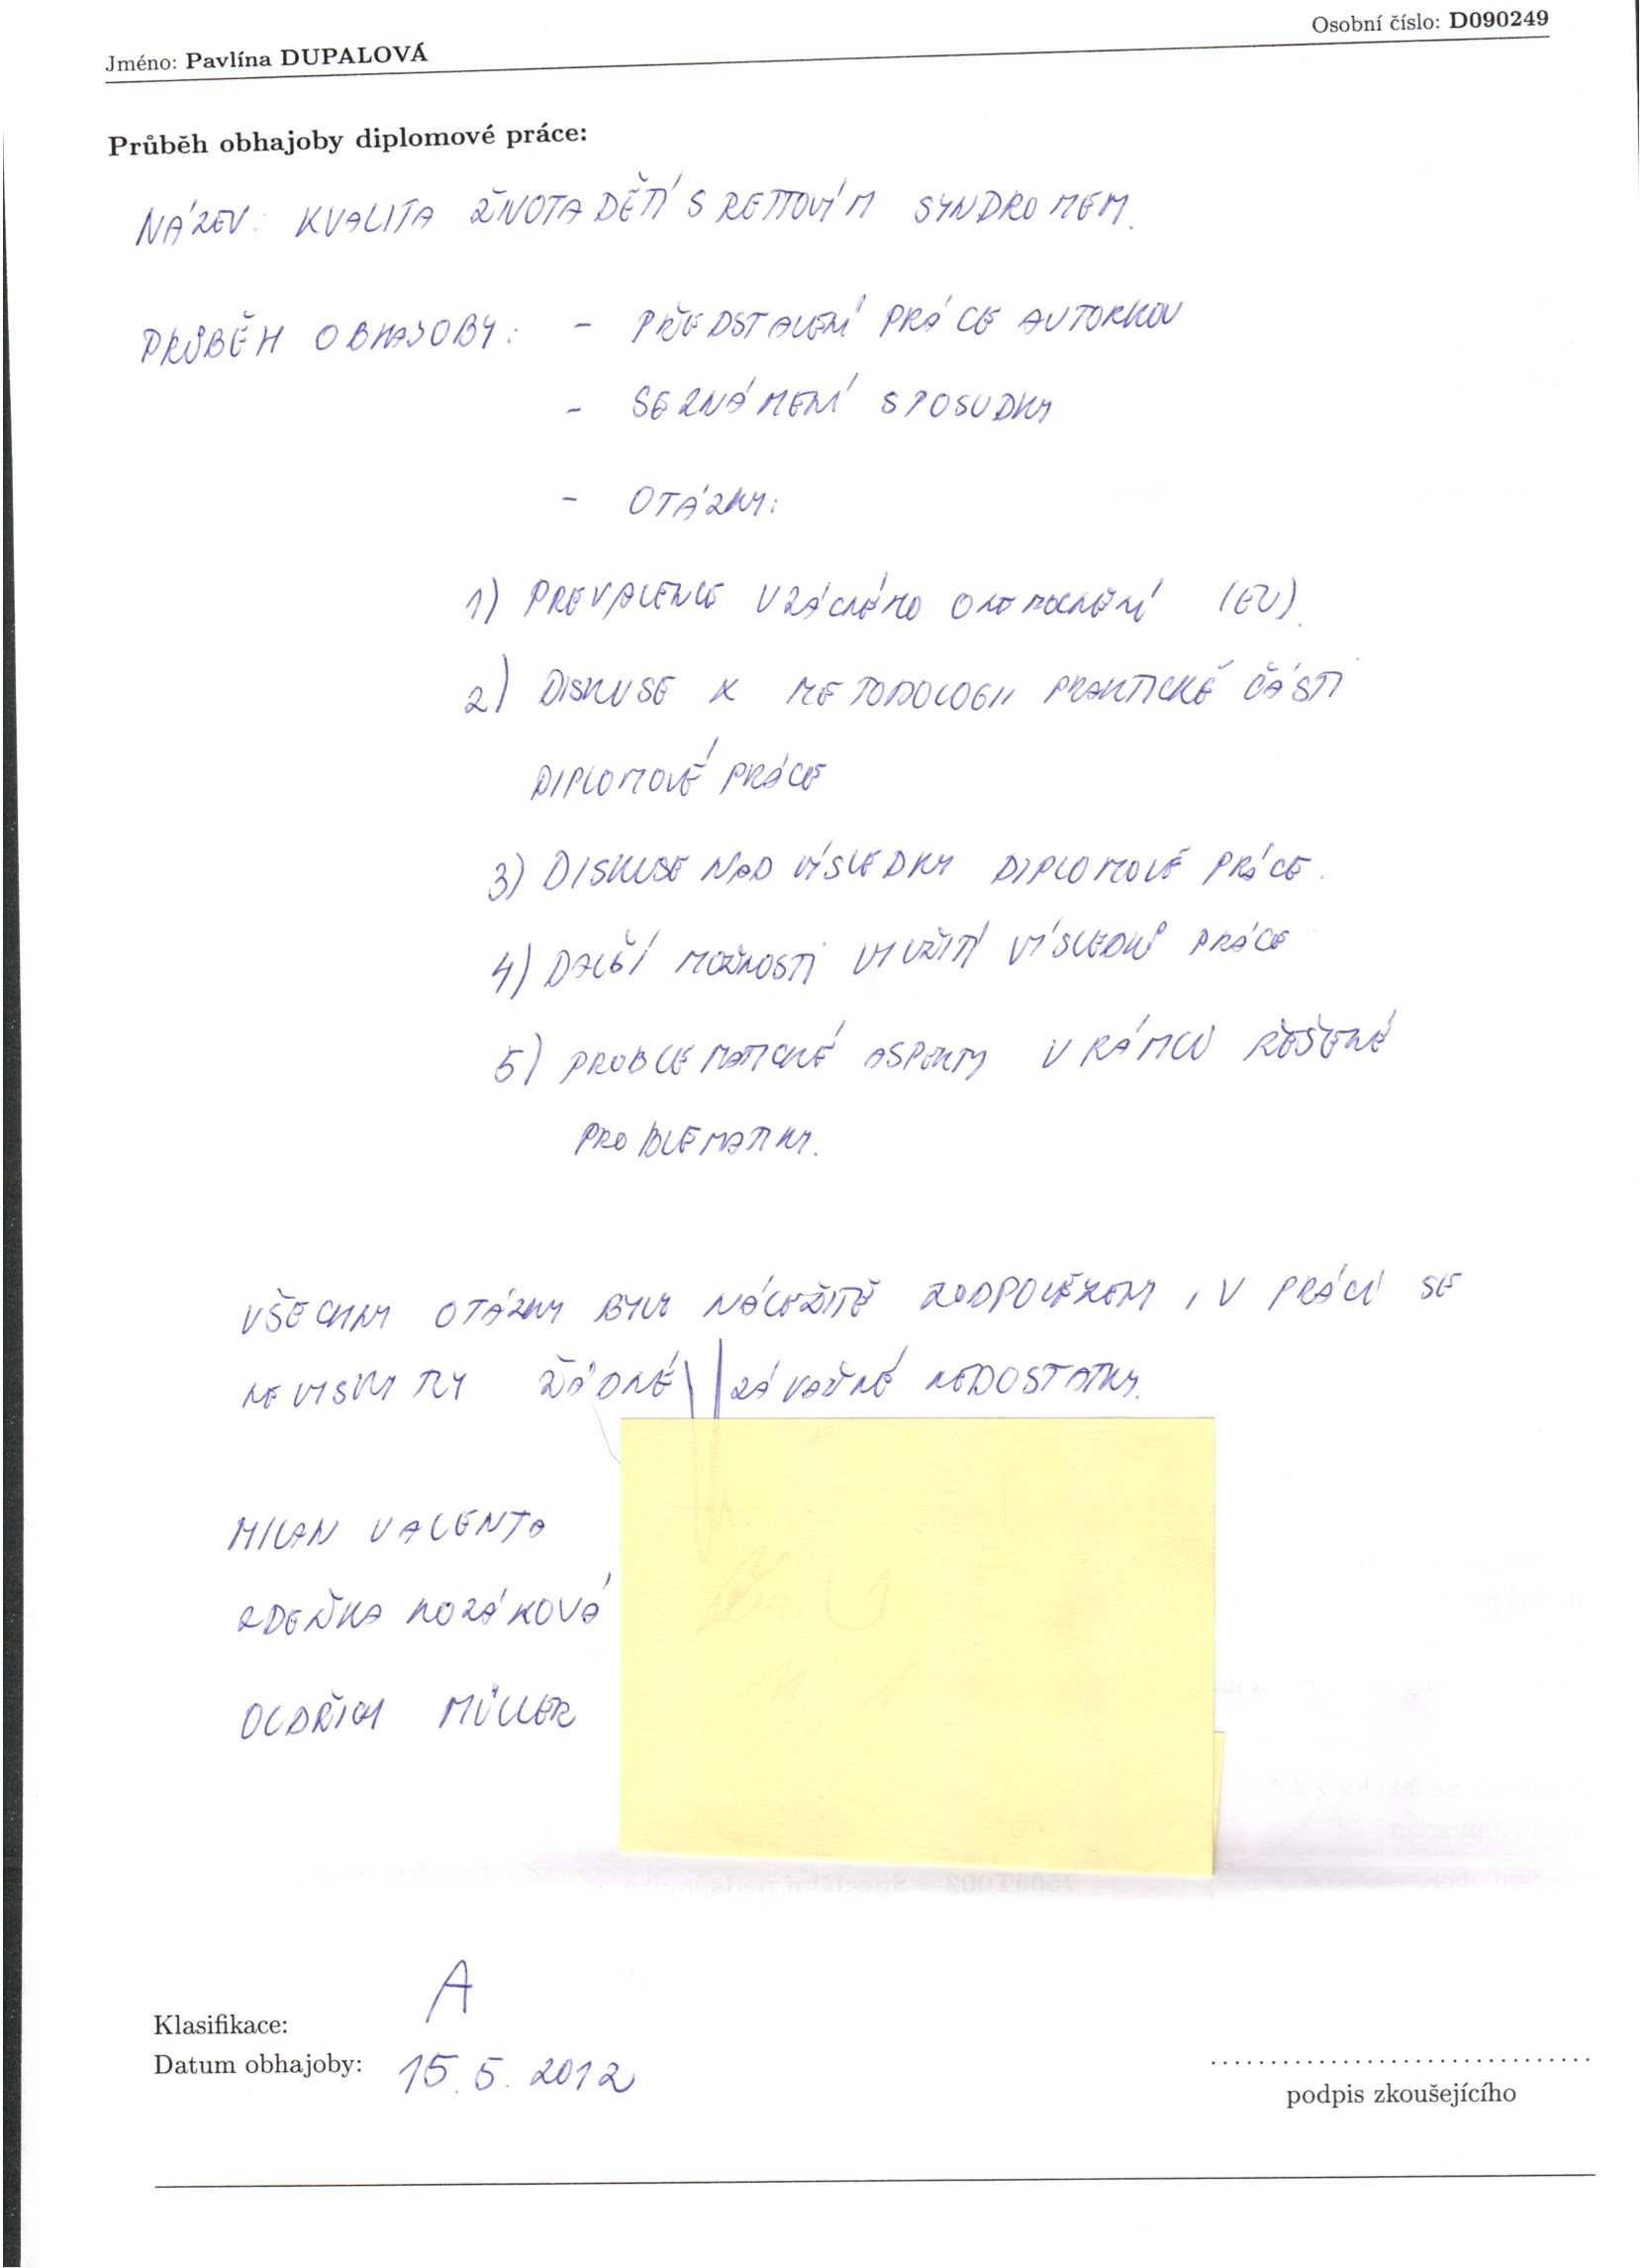 Osobní číslo: D090249
Jméno: Pavlína DUPALOVÁ
Průběh obhajoby diplomové práce:
NÁZEV: KVALITA ŽIVOTA DĚTÍ S RETTOVÝM SYNDROMEM.
PRŮBĚH OBHAJOBY: - PŘEDSTAVENÍ PRÁCE AUTORKOU
- SEZNÁMENÍ S POSUDKY
- OTÁZKY:
1) PREVALENCE VZÁCNÉHO ONEMOCNĚNÍ (EU).
2) DISKUSE K METODOLOGII PRAKTICKÉ ČÁSTI
DIPLOMOVÉ PRÁCE
3) DISKUSE NAD VÝSLEDKY DIPLOMOVÉ PRÁCE.
4) DALŠÍ MOŽNOSTI VYUŽITÍ VÝSLEDKŮ PRÁCE
5) PROBLEMATICKÉ ASPEKTY V RÁMCI ŘEŠENÉ
PROBLEMATIKY.
VŠECHNY OTÁZKY BYLY NÁLEŽITĚ ZODPOVĚZENY, V PRÁCI SE
NEVYSKYTLY ŽÁDNÉ ZÁVAŽNÉ NEDOSTATKY.
MILAN VALENTA
ZDEŇKA KOZÁKOVÁ
OLDŘICH MÜLLER
Klasifikace: A
Datum obhajoby: 15. 5. 2012
podpis zkoušejícího